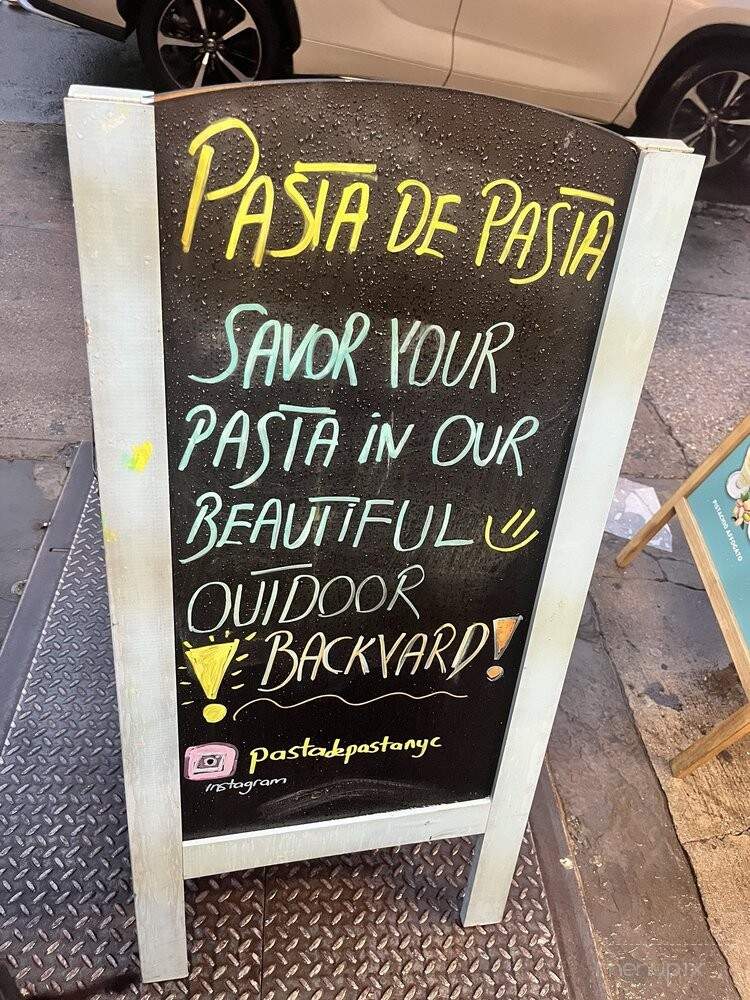 PASTA DE PASTA
SAVOR YOUR
PASTA iN OUR
BEAUTiFUL
OUTDOOR
BACKYARD!
pastadepastanyc
instagram
PISTACHIO AFFOGATO